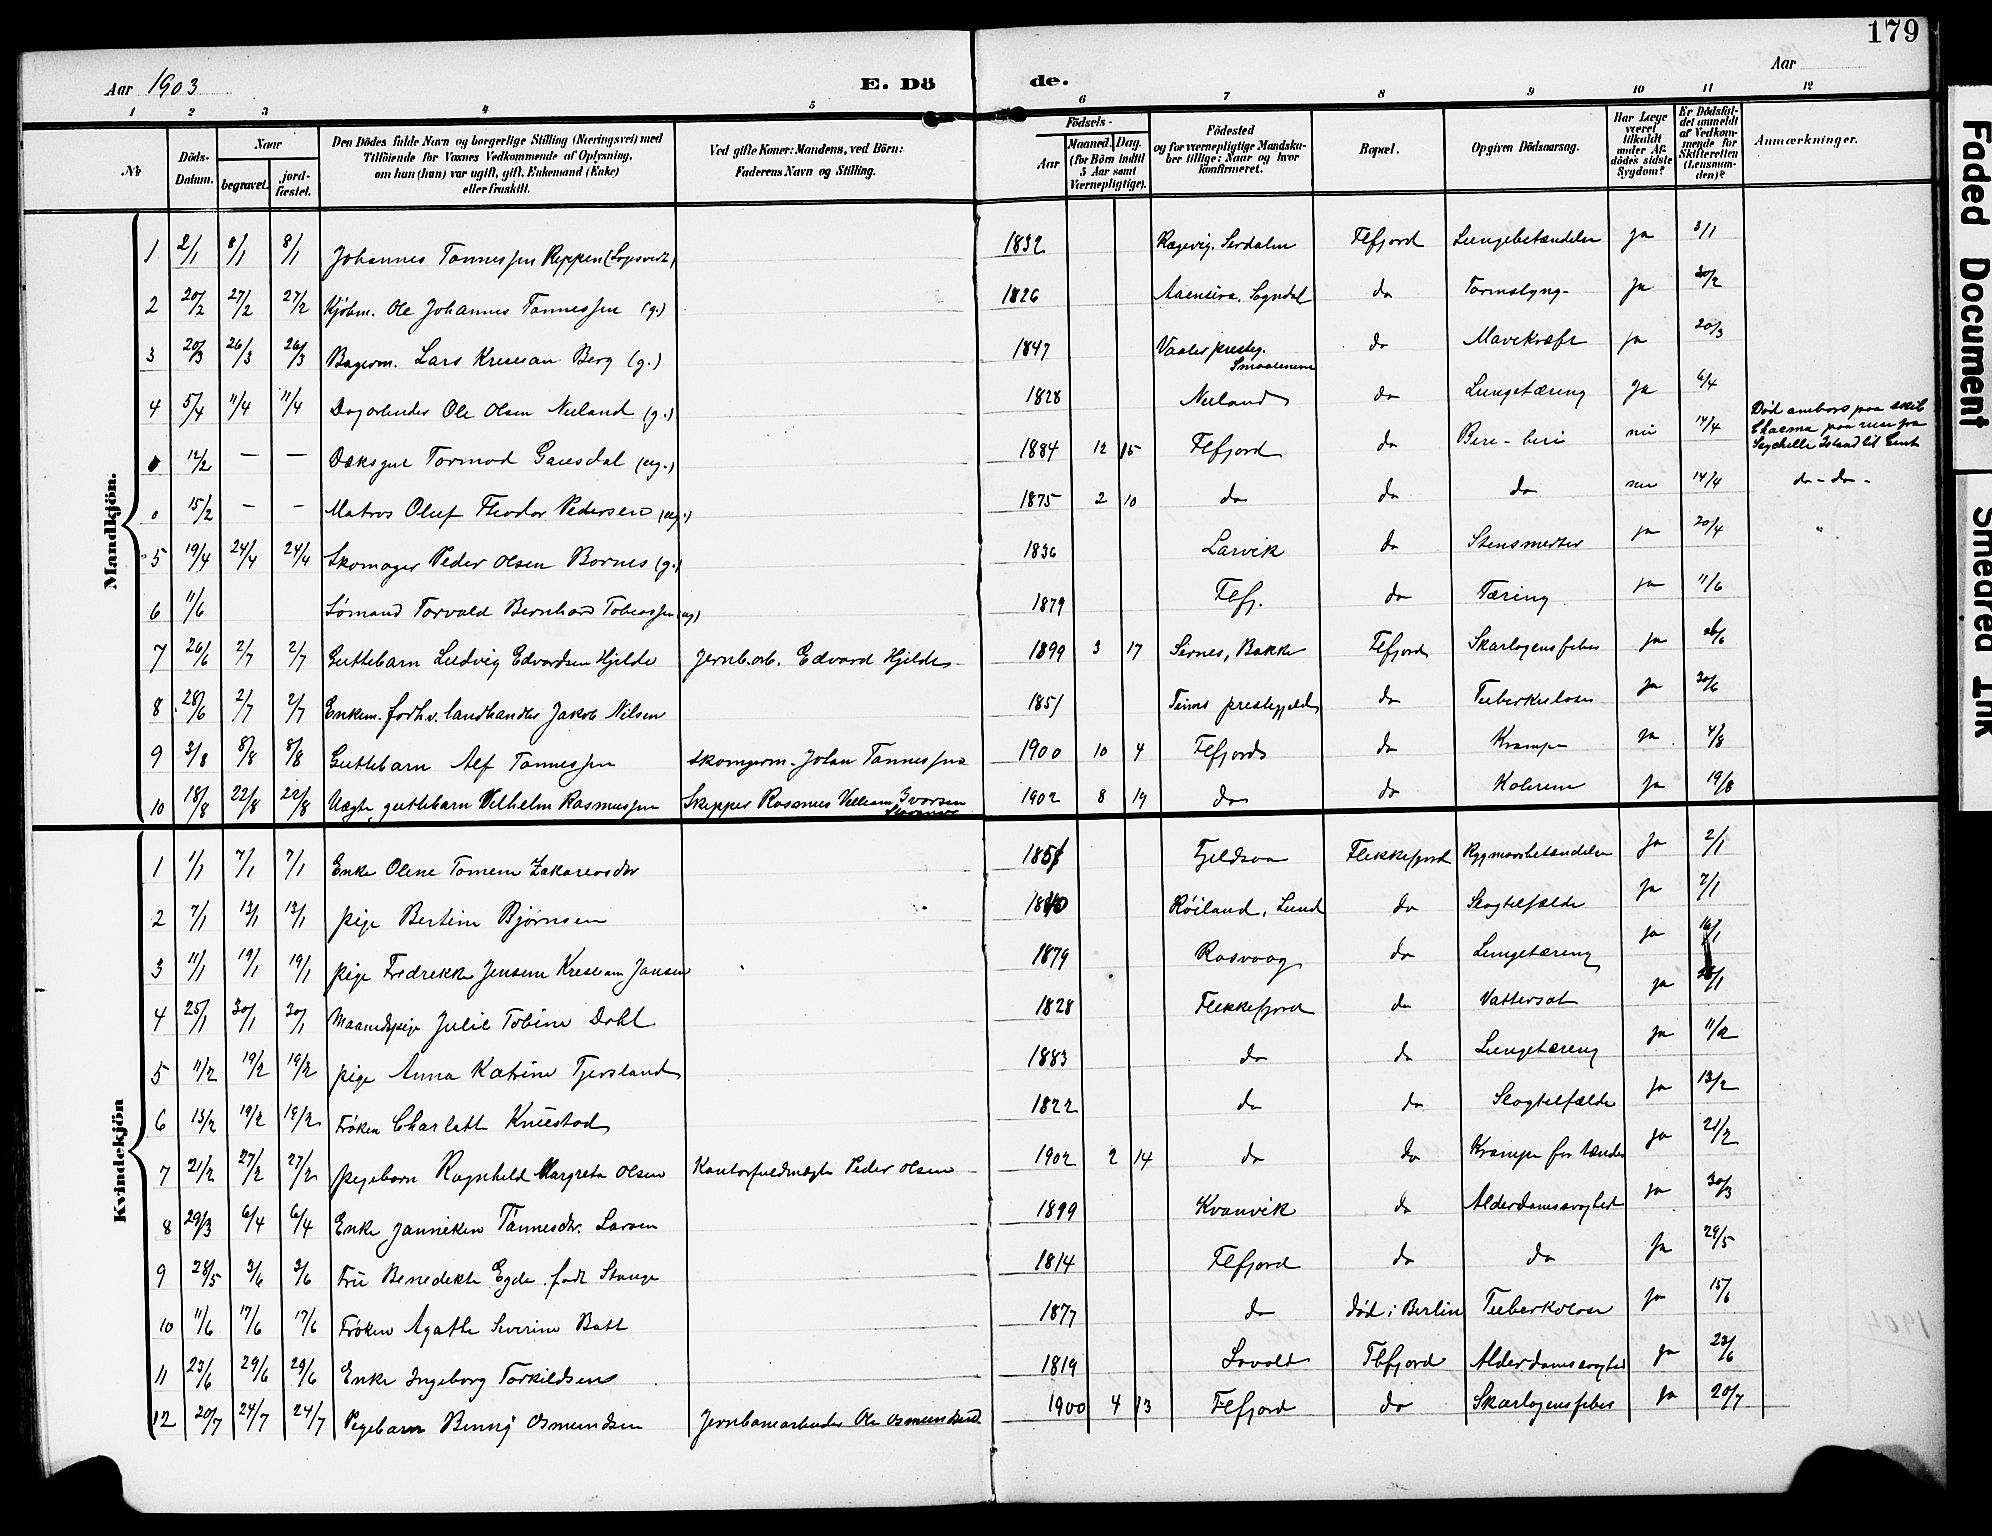 179
Aar 1903
E. Dö de.
Aar
1 2 3 4 5 6 7 8 9 10 11 12
No
Döds-Datum.
Naar
begravet.
jordfæstet.
Den Dödes fulde Navn og borgerlige Stilling (Næringsvei) med Tilföiende for Voxnes Vedkommende af Oplysning, om han (hun) var ugift, gift, Enkemand (Enke) eller fraskilt.
Ved gifte Koner: Mandens, ved Börn: Faderens Navn og Stilling.
Födsels-
Aar
Maaned. Dag.
(for Börn indtil 5 Aar samt Værnepligtige).
Födested og for værnepligtige Mandskaber tillige: Naar og hvor konfirmeret.
Bopæl.
Opgiven Dödsaarsag.
Har Læge været tilkaldt under Afdödes sidste Sygdom?
Er Dödsfaldet anmeldt af Vedkommende for Skifteretten (Lensmanden)?
Anmærkninger.
Mandkjön.
1 2/1 8/1 8/1 Johannes Tønnessen Reppen 1832 Serdalen Flfjord Lungebetændelse ja 3/1
2 20/2 27/2 27/2 Kjöbm. Ole Johannes Tønnessen (g.) 1826 Aaensira, Sogndal do Tarmslyng- ja 20/2
3 20/3 26/3 26/3 Bagerm. Lars Kristian Berg (g.) 1847 Vaaler presteg. Smaalenene do Mavekræft ja 20/3
4 5/4 11/4 11/4 Dagarbeider Ole Olsen Nuland (g.) 1828 Nuland do Lungetæring ja 6/4
0 12/2 — — Dæksgut Tormod Gausdal (ug.) 1884 12 15 Flfjord do Beri-beri nei 14/4 Død ombord paa skib Charma paa reise fra Seychelle Island til
0 15/2 - - Matros Oluf Theodor Pedersen (ug.) 1875 2 10 do do do nei 14/4 do - do -
5 19/4 24/4 24/4 Skomager Peder Olsen Bornes (g.) 1836 Larvik do Stensmerter ja 20/4 "
6 11/6 Sømand Torvald Bernhard Tobiassen (ug) 1879 Flfj. do Tæring ja 11/6
7 26/6 2/7 2/7 Guttebarn Ludvig Edvardsen Hjelde Jernb.arb. Edvard Hjelde 1899 3 17 Sirnes, Bakke Flfjord Skarlagensfeber ja 26/6
8 28/6 2/7 2/7 Enkem. forhv. landhandler Jakob Nilsen 1851 Tims prestegjeld do Tuberkulose ja 30/6
9 3/8 8/8 8/8 Guttebarn Alf Tønnessen skomgerm. Johan Tønnessen 1900 10 4 Flfjord do Krampe ja 4/8
10 18/8 22/8 22/8 Ægte guttebarn Vilhelm Rasmussen Skipper Rasmus Villiam Ivarsen 1902 8 19 do do Kolerine ja 19/8
Kvindekjön
1 1/1 7/1 7/1 Enke Oline Tomine Zakariasdtr 1851 Fjeldsaa Flekkefjord Rygmarvbetændelse ja 2/1
2 7/1 13/1 13/1 pige Bertine Bjørnsen 1840 Røiland, Lund do Slagtilfælde ja 7/1
3 11/1 19/1 19/1 pige Fredrikke Jensine Kristiane Jansen 1879 Rasvaag do Lungetæring ja 16/1
4 25/1 30/1 30/1 Maanedspige Julie Tobine Dahl 1828 Flekkefjord do Vattersot ja 26/1
5 11/2 19/2 19/2 pige Anna Katrine Tjersland 1883 do do Lungetæring ja 11/2
6 13/2 19/2 19/2 Frøken Charlotte Knudstad 1822 do do Slagtilfælde ja 13/2
7 21/2 27/2 27/2 pigebarn Ragnhild Margreta Olsen Kontorfuldmægt. Peder Olsen 1902 2 14 do do Krampe for tænder ja 21/2
8 29/3 6/4 6/4 Enke Janniken Tønnesdtr. Larsen 1899 Kvanvik do Alderdomssvaghed ja 30/3
9 28/5 3/6 3/6 Fru Benedikte Egde født Stange 1814 Flfjord do do ja 29/5
10 11/6 17/6 17/6 Frøken Agathe Severine Bott 1877 do død i Berlin Tuberkulose ja 15/6
11 23/6 29/6 29/6 Enke Ingeborg Torkildsen 1819 Lovold Flfjord Alderdomssvaghed ja 23/6
12 20/7 24/7 24/7 Pigebarn Benny Osmundsen Jernbanearbeider Ole Osmundsen 1900 4 13 Flfjord do Skarlagensfeber ja 20/7
Faded Document
Smeared Ink